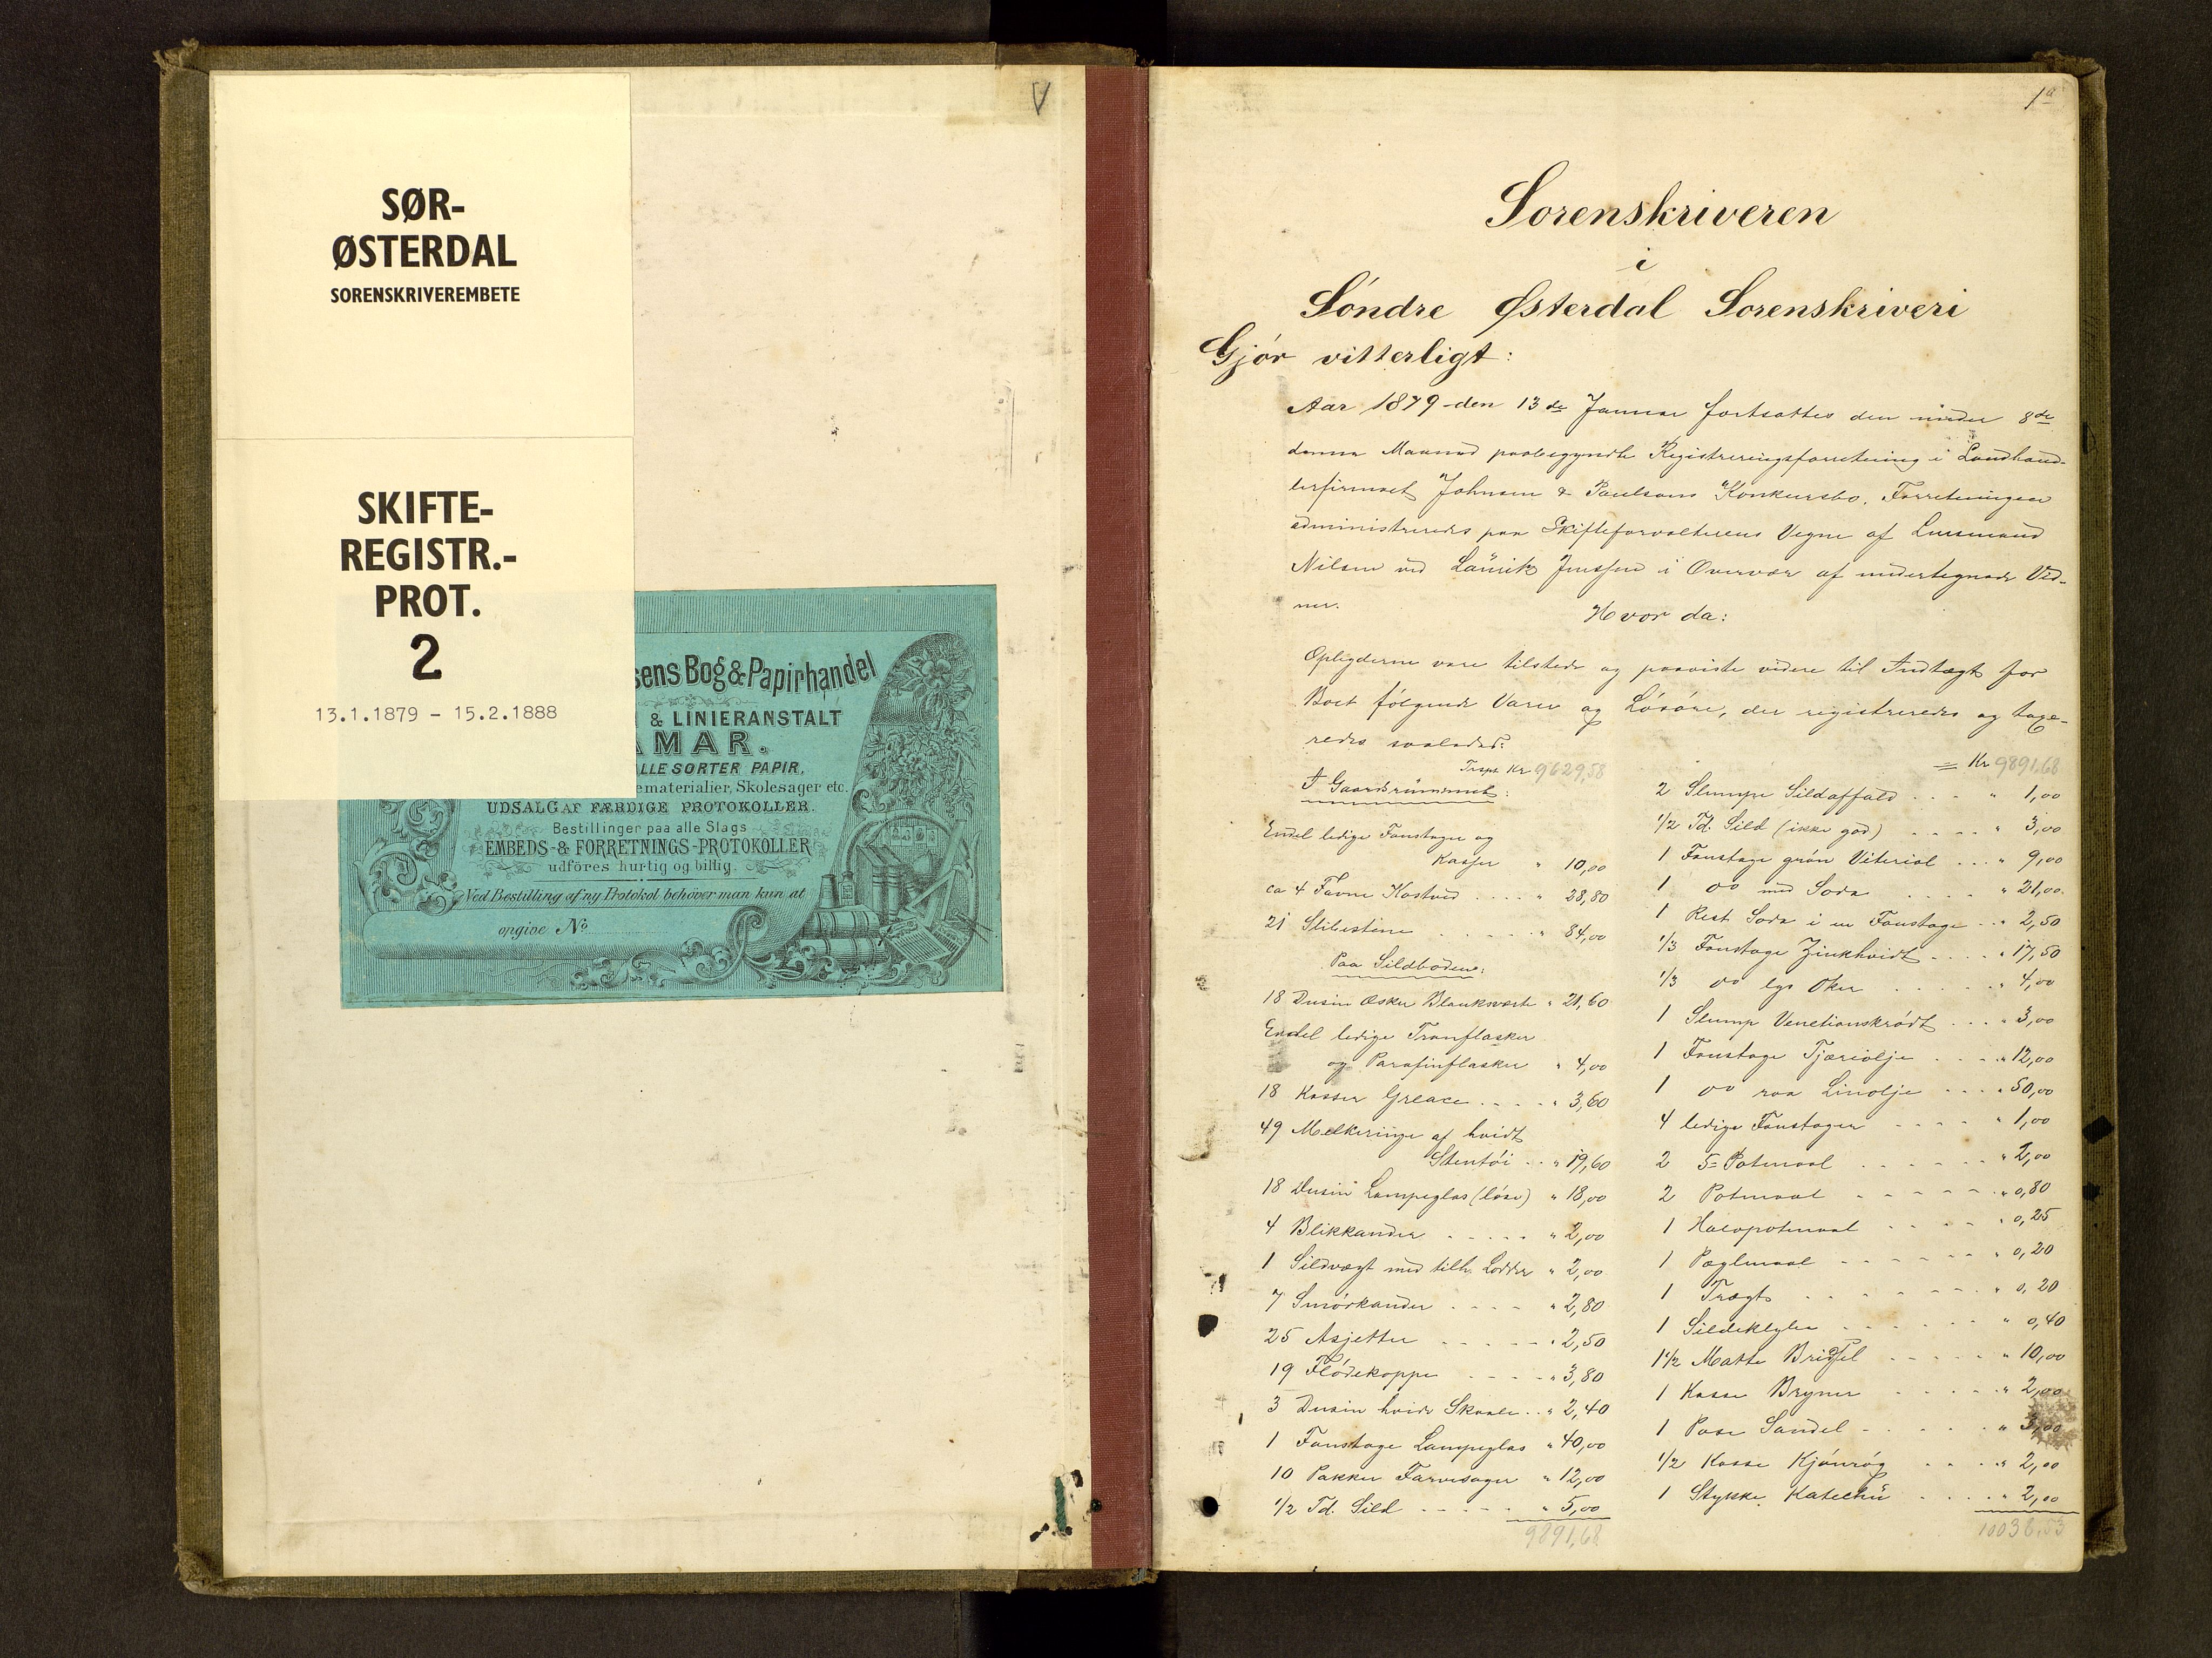 SØR-
ØSTERDAL
SORENSKRIVEREMBETE
SKIFTE-
REGISTR.-
PROT.
2
13.1.1879 - 15.2.1888
sens Bog & Papirhandel
& LINIERANSTALT
AMAR.
ALLE SORTER PAPIR,
ematerialier, Skolesager etc.
UDSALG AF FÆRDIGE PROTOKOLLER.
Bestillinger paa alle Slags
EMBEDS- & FORRETNINGS-PROTOKOLLER
udföres hurtig og billig.
Ved Bestilling af ny Protokol behöver man kun at
opgive No
V
1a
Sorenskriveren
i
Söndre Østerdal Sorenskriveri
Gjör vitterligt:
Aar 1879 den 13de Januar fortsattes den under 8de
denne Maaned paabegyndte Registreringsforretning i Landhand-
lerfirmaet Johnsen & Paulsens Konkursbo. Forretningen
administreredes paa Skifteforvalterens Vegne af Lensmand
Nilsen ved Laurits Jenssen i Overvær af undertegnede Vid-
ner.
Hvor da:
Opbyderne vare tilstede og paaviste videre til Indtægt for
Boet følgende Varer og Lösöre, der registreredes og taxe-
redes saaledes:
Trspt. Kr 9629,58
I Gaardsrummet:
Endel ledige Foustager og
Kasser " 10,00
ca 4 Favne Kostved .... " 28,80
21 Slibestene ..... " 84,00
Paa Sildboden:
18 Dusin Æsker Blanksværte " 21,60
Endel ledige Tranflasker
og Parafinflasker " 4,00
18 Kasser Greace .... " 3,60
49 Melkeringe af hvidt
Stentöi .. " 19,60
18 Dusin Lampeglas (löse) " 18,00
4 Blikkander ..... " 2,00
1 Sildvægt med tilh. Lodder " 2,00
7 Smörkander .... " 2,80
25 Asjetter ..... " 2,50
19 Flödekopper .... " 3,80
3 Dusin hvide Skaale .. " 2,40
1 Foustage Lampeglas " 40,00
10 Pakker Farvesager " 12,00
1/2 Td. Sild ..... " 5,00
9891,68
= Kr 9891,68
2 Slumpe Sildaffald ... " 1,00
1/2 Td. Sild (ikke god) .... " 3,00
1 Foustage grön Viteriol ... " 9,00
1 do med Soda .... " 21,00
1 Rest Soda i en Foustage .. " 2,50
1/3 Foustage Zinkhvidt .... " 17,50
1/3 do lys Oker ..... " 4,00
1 Slump Venetianskrödt ... " 3,00
1 Foustage Tjæreolje .... " 12,00
1 do raa Linolje .... " 50,00
4 ledige Foustager .... " 1,00
2 5=Potmaal ..... " 2,00
2 Potmaal ..... " 0,80
1 Halvpotmaal .... " 0,25
1 Pæglmaal ..... " 0,20
1 Trægt ...... " 0,20
1 Sildeklype ..... " 0,40
1 1/2 Matte ..... " 10,00
1 Kasse Bryner .... " 2,00
1 Pose Sandel ..... " 3,00
1/2 Kasse Kjönrög .... " 2,00
1 Stykke Katechu .... " 2,00
10038,53